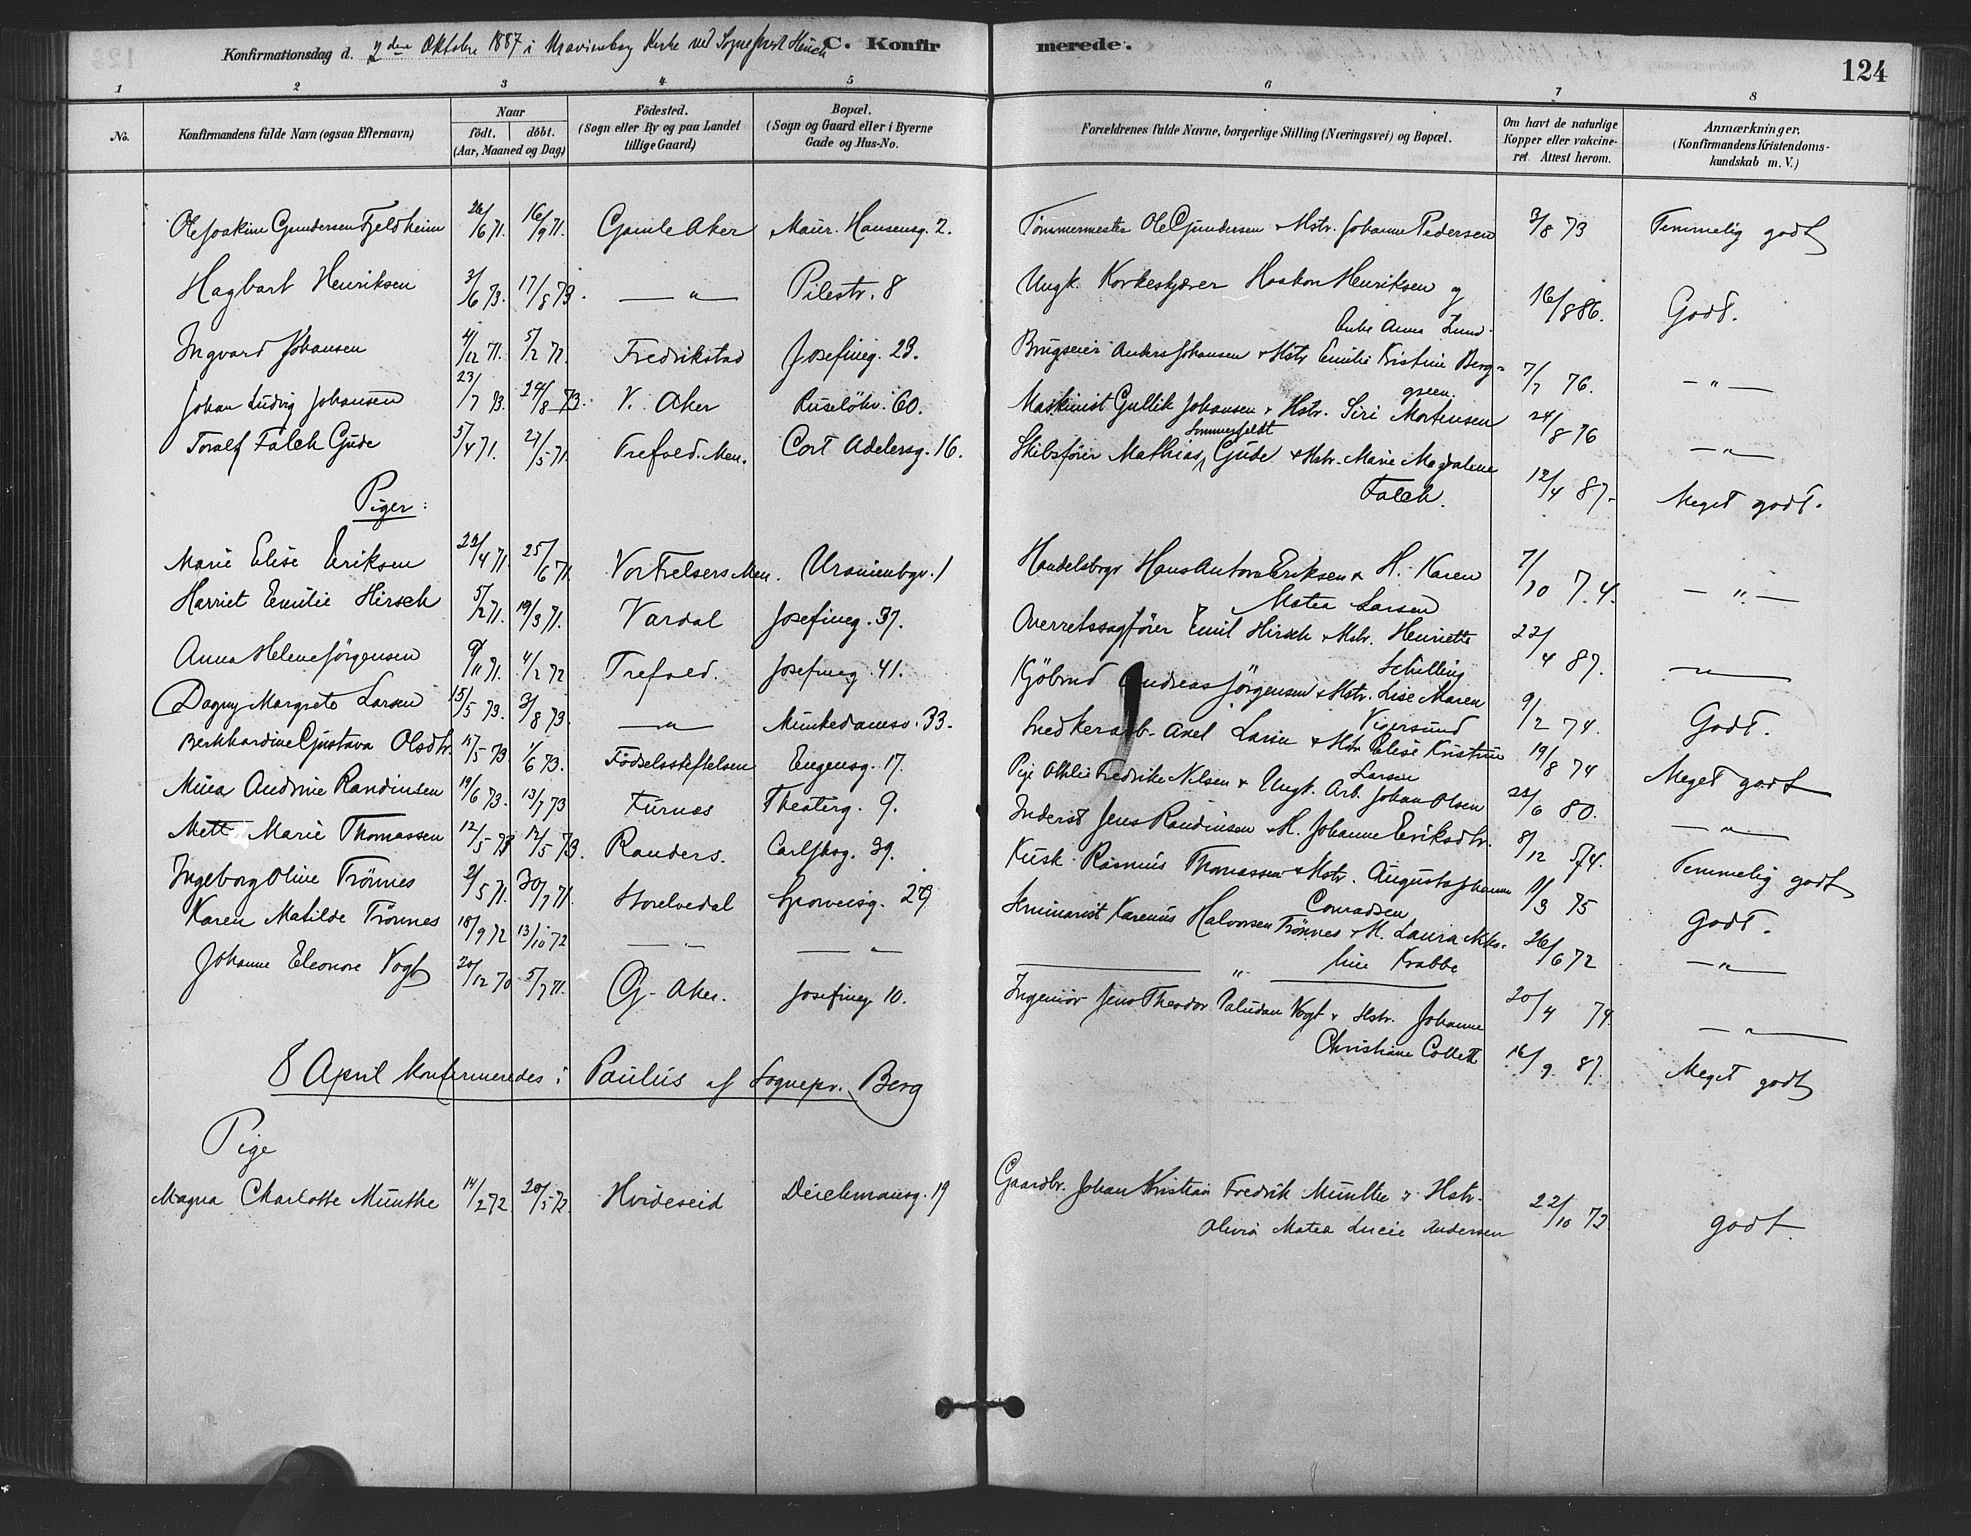 Konfirmationsdag d. 2den Oktober 1887 i Uranienborg Kirke ved Sogneprest Heuch C. Konfirmerede. 124
1 2 3 4 5 6 7 8
No. Konfirmandens fulde Navn (ogsaa Efternavn) Naar födt. döbt. (Aar, Maaned og Dag) Födested. (Sogn eller By og paa Landet tillige Gaard) Bopæl. (Sogn og Gaard eller i Byerne Gade og Hus-No. Forældrenes fulde Navne, borgerlige Stilling (Næringsvei) og Bopæl. Om havt de naturlige Kopper eller vakcineret. Attest herom. Anmærkninger. (Konfirmandens Kristendomskundskab m. V.)
Ole Joakim Gundersen Fjeldheim 26/6 71. 16/9 71. Gamle Aker Maur. Hansensg. 2. Tömmermester Ole Gundersen & Hstr. Johanne Pedersen 3/8 73 Temmelig godt
Hagbart Henriksen 3/6 73. 17/8 73. — " — Pilestr. 8 Ungk. Korkeskjærer Haakon Henriksen og
Enke Anna Lund. 16/8 86. Godt.
Ingvard Johansen 4/12 71. 5/2 72. Fredrikstad Josefineg. 23. Brugseier Anders Johansen & Hstr Emilie Kristine Berg-
green. 7/7 76. — " —
Johan Ludvig Johansen 23/7 73. 24/8 73. V. Aker Ruselökv. 60. Maskinist Gullik Johansen & Hstr. Siri Mortensen 24/8 76 — " —
Toralf Falch Gude 5/4 71. 27/5 71. Trefold. Men. Cort Adelersg. 16. Skibsförer Mathias Sommerfeldt Gude & Hstr. Marie Magdalene
Falch. 12/4 87. Meget godt.
Piger:
Marie Elise Eriksen 22/4 71. 25/6 71. Vor Frelsers Men. Uranienbgv. 1 Handelsbogr Hans Anton Eriksen & H. Karen
Matea Larsen 7/10 74. — " —
Harriet Emilie Hirsch 5/2 71. 19/3 71. Vardal Josefineg. 37. Overretssagförer Emil Hirsch & Hstr. Henriette
Schilling 22/4 87. — " —
Anna Helene Jörgensen 9/11 71. 4/2 72 Trefold. Josefineg. 41. Kjöbmd Andreas Jörgensen & Hstr. Lise Maren
Vigersund 9/2 74. Godt.
Dagny Margrete Larsen 15/5 73. 3/8 73. — " — Munkedamsv. 33. Snedkerarb. Axel Larsen & Hstr Elise Kristine
Larsen 19/8 74 Meget godt
Berkhardine Gustava Olsdtr. 17/5 73 1/6 73. Födselsstiftelsen Eugensg. 17. Pige Othlie Fredrike Nilsen & Ungk. Arb. Johan Olsen 22/6 80. — " —
Mina Andrine Randinsen 19/6 73. 13/7 73 Furnæs Theaterg. 9. Inderst Jens Randinsen & H. Johanne Eriksdtr. 8/12 74. Temmelig godt
Mette Marie Thomassen 12/5 73 12/5 73. Randers. Carl Jhsg. 39. Kusk. Rasmus Thomassen & Hstr. Augusta Johanne
Conradsen 11/3 75 Godt.
Ingeborg Oline Trönnes 2/5 71. 30/7 71. Storelvedal Sporveisg. 29 Seminarist Karenus Halvorsen Trönnes & H. Laura Niko-
line Krabbe 26/6 72 — " —
Karen Matilde Trönnes 18/9 72 13/10 72 — " — — " — — " — 20/4 74. — " —
Johanne Eleonore Vogt 20/12 70 5/7 71. G. Aker. Josefineg. 10. Ingeniör Jens Theodor Paludan Vogt & Hstr. Johanne
Christiane Collett 16/9 87. Meget godt
8 April konfirmeredes i Paulus af Sognepr. Berg
Pige
Magna Charlotte Munthe 14/2 72 20/5 72. Hvideseid Deichmansg. 19 Gaardbr. Johan Kristian Fredrik Munthe & Hstr.
Olivia Matea Lucie Andersen 22/10 73 godt.